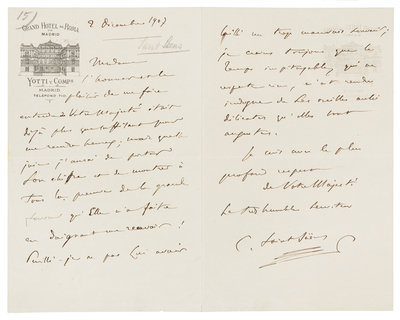 15)
GRAND HOTEL DE ROMA
MADRID
YOTTI Y COMPª
MADRID
TELEFONO 710
2 Décembre 1907
Saint Saens
Madame
l'honneur et le
plaisir de me faire
entendre à Votre Majesté était
déjà plus que suffisant pour
me rendre heureux; mais quelle
joie j'aurai de porter
Son chiffre et de montrer à
tous la preuve de la grande
faveur qu'Elle m'a faite
en daignant me recevoir!
Puissé-je ne pas Lui avoir
laissé un trop mauvais souvenir;
je crains toujours que le
temps impitoyable, qui ne
respecte rien, m'ait rendu
indigne de Les oreilles aussi
délicates qu'elles sont
augustes.
Je suis avec le plus
profond respect
de Votre Majesté
Le très humble serviteur
C. Saint-Saëns